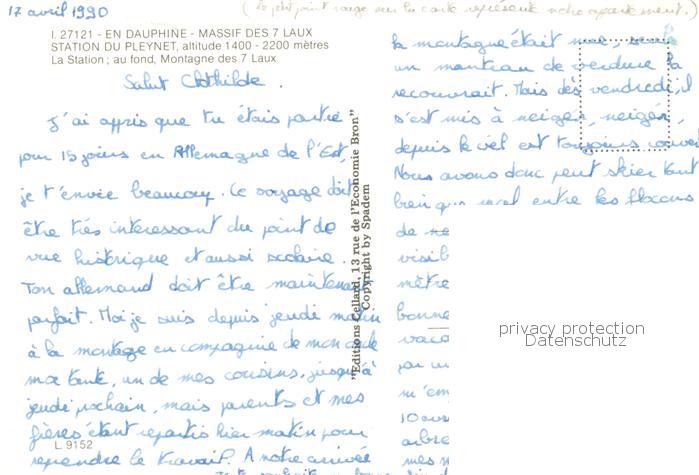 17 avril 1990
(Le petit point rouge sur la carte représente notre appartement.)
I. 27121 - EN DAUPHINE - MASSIF DES 7 LAUX
STATION DU PLEYNET, altitude 1400 - 2200 mètres
La Station ; au fond, Montagne des 7 Laux
Salut Clothilde.
J'ai appris que tu étais partie
pour 15 jours en Allemagne de l'Est,
je t'envie beaucoup. Ce voyage doit
être très interessant du point de
vue historique et aussi scolaire.
Ton allemand doit être maintenant
parfait. Moi je suis depuis jeudi matin
à la montagne en compagnie de mon oncle
ma tante, un de mes cousins, jusqu'à
jeudi prochain, mais parents et mes
frères étant repartis hier matin pour
reprendre le travail. A notre arrivée
L. 9152
"Editions Cellard, 13 rue de l'Economie Bron"
Copyright by Spadem
la montagne était nue, seule
un manteau de verdure la
recouvrait. Mais dès vendredi, il
s'est mis à neiger, neiger,
depuis le ciel est toujours couvert
Nous avons donc peut skier tant
bien que mal entre les flocons
de ne
visib
mètre
bonne
vaca
par un
m'em
10 avr
arbre
mes n
privacy protection
Datenschutz